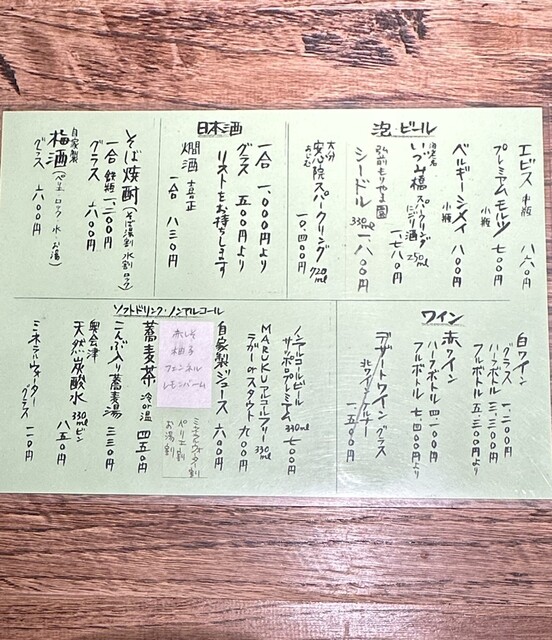 泡・ビール
エビス 中瓶 八六〇円
プレミアムモルツ 小瓶 七〇〇円
ベルギーシメイ 小瓶 八〇〇円
いづみ橋 スパークリング にごり酒 250ml 一、七八〇円
弘前もりやま園
シードル 330ml 一、八〇〇円
大分
安心院スパークリング 720ml
一〇、四〇〇円
日本酒
一合 一、〇〇〇円より
グラス 五〇〇円より
リストをお持ちします
燗酒 喜正
一合 八三〇円
そば焼酎(そば湯割 水割 ロック)
一合 鉄瓶 一、二〇〇円
グラス 六〇〇円
自家製
梅酒(ソーダ ロック 水 お湯)
グラス 六〇〇円
ワイン
白ワイン
グラス 一、二〇〇円
ハーフボトル 三、三〇〇円
フルボトル 五、三〇〇円より
赤ワイン
ハーフボトル 四、一〇〇円
フルボトル 七、四〇〇円より
デザートワイン グラス
一、五〇〇円
ソフトドリンク・ノンアルコール
ノンアルコールビール
サッポロプレミアム 330ml 七〇〇円
MARUKU アルコールフリー 330ml
ラガー or スタウト 九〇〇円
自家製ジュース 六〇〇円
赤しそ
柚子
フェンネル
レモンバーム
ミネラルウォーター割
ペリエ割
お湯割
蕎麦茶 冷or温 四五〇円
こんぶ入り蕎麦湯 三三〇円
奥会津
天然炭酸水 330mlビン 八五〇円
ミネラルウォーター
グラス 一一〇円